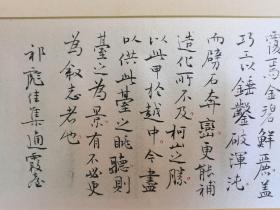 霞焉金碧鮮麗蓋
巧以錘鑿破渾沌
而劈石奔巒更能補
造化所不及柯山之勝
以此甲於越中今盡
以供此臺之眺聽則
臺之為景有不必更
為叙志者也
祁彪佳集通霞臺